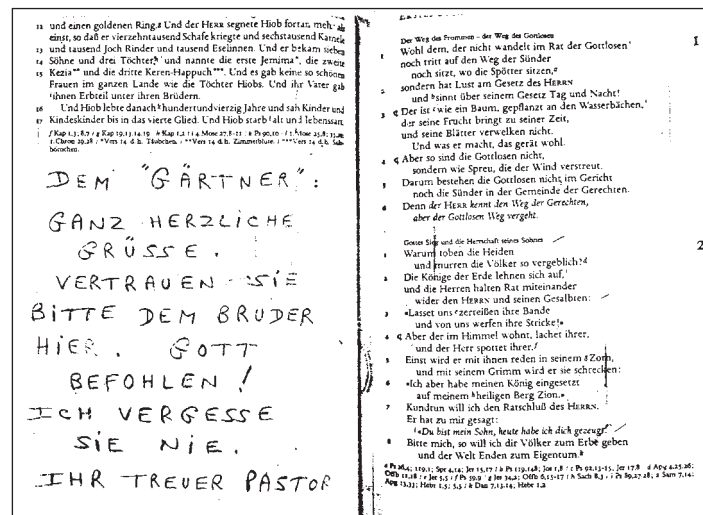 12 und einen goldenen Ring.g Und der HERR segnete Hiob fortan mehr als
einst, so daß er vierzehntausend Schafe kriegte und sechstausend Kamele
13 und tausend Joch Rinder und tausend Eselinnen. Und er bekam sieben
14 Söhne und drei Töchter,h und nannte die erste Jemima*, die zweite
15 Kezia** und die dritte Keren-Happuch***. Und es gab keine so schönen
Frauen im ganzen Lande wie die Töchter Hiobs. Und ihr Vater gab
ihnen Erbteil unter ihren Brüdern.
16 Und Hiob lebte danach hundertundvierzig Jahre und sah Kinder und
17 Kindeskinder bis in das vierte Glied. Und Hiob starb alt und lebenssatt.
1. Chron 29,28 / *Vers 14 d.h. Täubchen. / **Vers 14 d.h. Zimmerblüte. / ***Vers 14 d.h.
DEM "GÄRTNER":
GANZ HERZLICHE
GRÜSSE.
VERTRAUEN SIE
BITTE DEM BRUDER
HIER. GOTT
BEFOHLEN!
ICH VERGESSE
SIE NIE.
IHR TREUER PASTOR
Der Weg des Frommen – der Weg des Gottlosen
1
1 Wohl dem, der nicht wandelt im Rat der Gottlosen
noch tritt auf den Weg der Sünder
noch sitzt, wo die Spötter sitzen,a
2 sondern hat Lust am Gesetz des HERRN
und bsinnt über seinem Gesetz Tag und Nacht!
3 Der ist cwie ein Baum, gepflanzt an den Wasserbächen,
der seine Frucht bringt zu seiner Zeit,
und seine Blätter verwelken nicht.
Und was er macht, das gerät wohl.
4 Aber so sind die Gottlosen nicht,
sondern wie Spreu, die der Wind verstreut.
5 Darum bestehen die Gottlosen nicht im Gericht
noch die Sünder in der Gemeinde der Gerechten.
6 Denn der HERR kennt den Weg der Gerechten,
aber der Gottlosen Weg vergeht.
Gottes Sieg und die Herrschaft seines Sohnes
2
1 Warum toben die Heiden
und murren die Völker so vergeblich?d
2 Die Könige der Erde lehnen sich auf,
und die Herren halten Rat miteinander
wider den HERRN und seinen Gesalbten:
3 »Lasset uns ezerreißen ihre Bande
und von uns werfen ihre Stricke!«
4 Aber der im Himmel wohnt, lachet ihrer,
und der Herr spottet ihrer.f
5 Einst wird er mit ihnen reden in seinem gZorn,
und mit seinem Grimm wird er sie schrecken:
6 »Ich aber habe meinen König eingesetzt
auf meinem hheiligen Berg Zion.«
7 Kundtun will ich den Ratschluß des HERRN.
Er hat zu mir gesagt:
i»Du bist mein Sohn, heute habe ich dich gezeugt.
8 Bitte mich, so will ich dir Völker zum Erbe geben
und der Welt Enden zum Eigentum.k